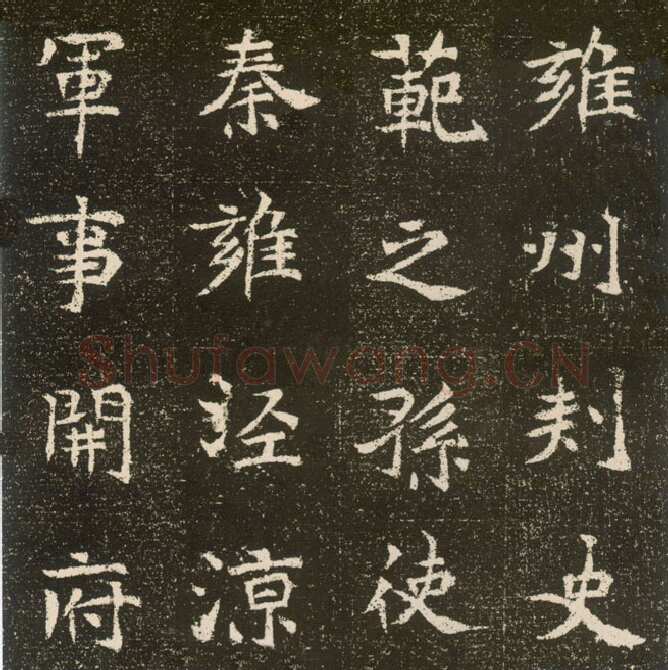 雍州刺史
範之孫使
秦雍泾涼
軍事開府
Shufawang.CN